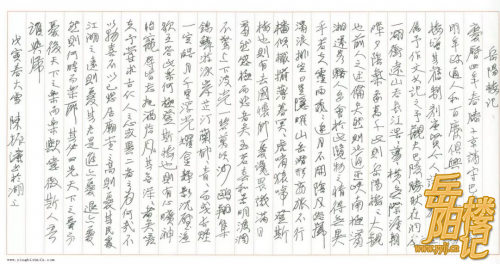 岳陽樓記
慶曆四年春滕子京謫守巴
明年政通人和百廢俱興
樓增其舊制刻唐賢今人
屬予作文以記之予觀夫巴陵勝狀在洞
一湖銜遠山吞長江浩浩湯湯橫無際涯朝
暉夕陰氣象萬千此則岳陽樓之大觀
也前人之述備矣然則北通巫峽南極瀟
湘遷客騷人多會於此覽物之情得無異
乎若夫霪雨霏霏連月不開陰風怒號
濁浪排空日星隱曜山岳潛形商旅不行
檣傾楫摧薄暮冥冥虎嘯猿啼登斯
樓也則有去國懷鄉憂讒畏譏滿目
蕭然感極而悲者矣至若春和景明波瀾
不驚上下天光一碧萬頃沙鷗翔集
錦鱗游泳岸芷汀蘭郁郁青青而或長煙
一空皓月千里浮光耀金靜影沉璧漁
歌互答此樂何極登斯樓也則有心曠神
怡寵辱皆忘把酒臨風其喜洋洋者矣嗟
夫予嘗求古仁人之心或異二者之為何哉不
以物喜不以己悲居廟堂之高則憂其民處
江湖之遠則憂其君是進亦憂退亦憂
然則何時而樂耶其必曰先天下之憂而
憂後天下之樂而樂歟噫微斯人吾
誰與歸
戊寅春大雪 陳 書於湖上
岳阳楼记
www.yingbishufa.com